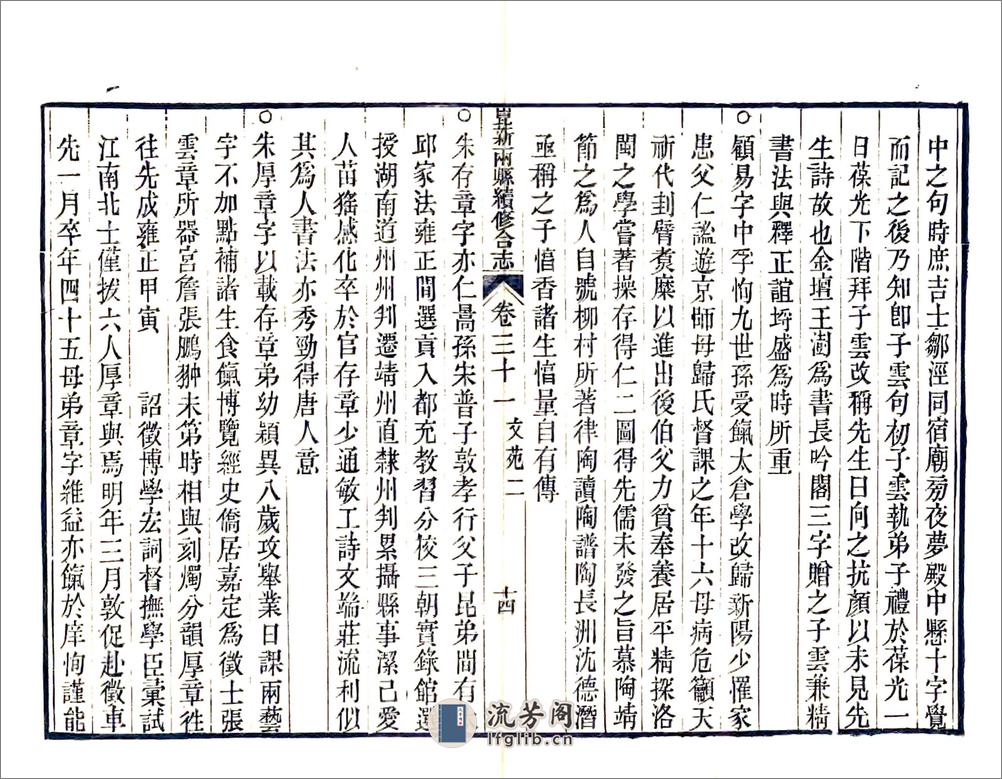 中之句時庶吉士鄒涇同宿廟旁夜夢殿中縣十字覺
而記之後乃知卽子雲句初子雲執弟子禮於葆光一
日葆光下階拜子雲改稱先生日向之抗顏以未見先
生詩故也金壇王澍爲書長吟閣三字贈之子雲兼精
書法與釋正誼埓盛爲時所重
○顧易字中孚恂九世孫受餼太倉學改歸新陽少罹家
患父仁謐遊京師母歸氏督課之年十六母病危籲天
祈代刲臂煑糜以進出後伯父力貧奉養居平精探洛
閩之學嘗著操存得仁二圖得先儒未發之旨慕陶靖
節之爲人自號柳村所著律陶讀陶譜陶長洲沈德潛
亟稱之子愔香諸生愔量自有傳
崑新兩縣續修合志 卷三十一 文苑二 十四
○朱存章字亦仁暠孫朱普子敦孝行父子昆弟間有
邱家法雍正間選貢入都充教習分校三朝實錄館選
授湖南道州州判遷靖州直隸州判累攝縣事潔己愛
人苗猺感化卒於官存章少通敏工詩文端莊流利似
其爲人書法亦秀勁得唐人意
○朱厚章字以載存章弟幼穎異八歲攻舉業日課兩藝
字不加點補諸生食餼博覽經史僑居嘉定爲徵士張
雲章所器宮詹張鵬翀未第時相與刻燭分韻厚章徃
往先成雍正甲寅 詔徵博學宏詞督撫學臣彙試
江南北士僅拔六人厚章與焉明年三月敦促赴徵車
先一月卒年四十五母弟章字維益亦餼於庠恂謹能
流芳阁
lfglib.cn